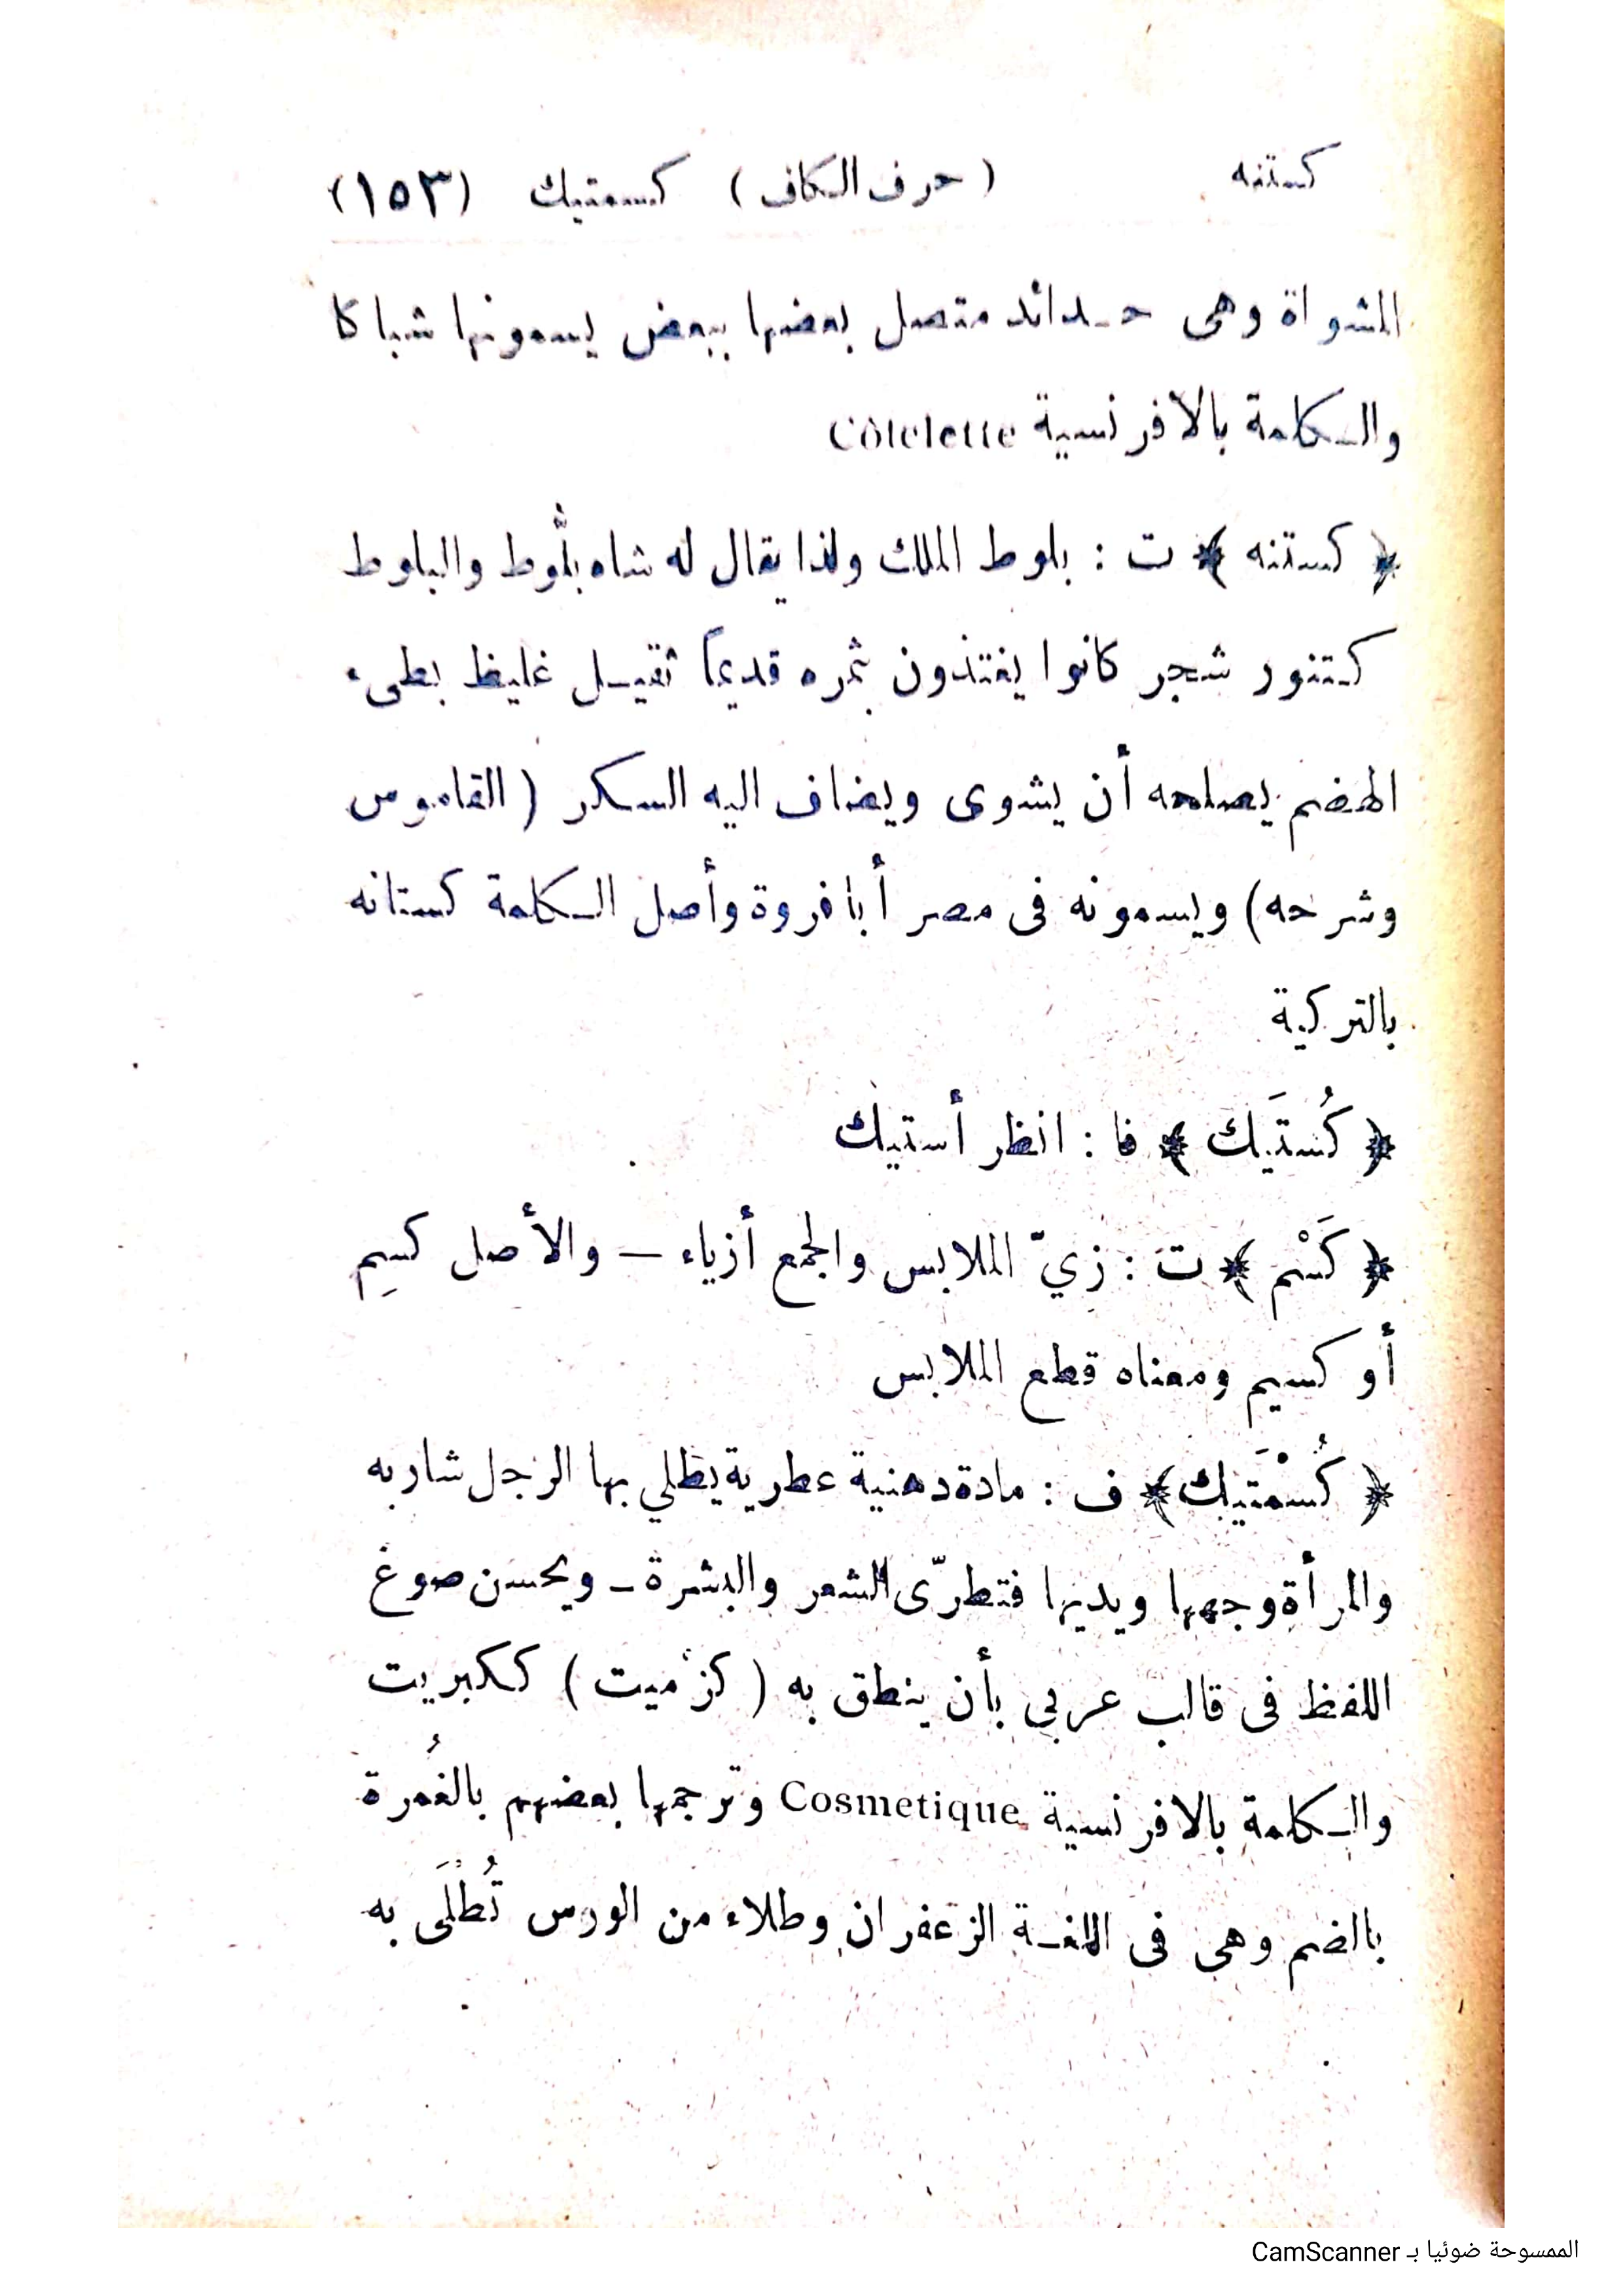 كستنه ( حرف الكاف ) كسمتيك (١٥٣)
المشواة وهى حدائد متصل بعضها ببعض يسمونها شباكا
والكلمة بالافرنسية Côtelette
﴿ كستنه ﴾ ت : بلوط الملك ولذا يقال له شاه بلُّوط والبلوط
كتنور شجر كانوا يغتذون بثمره قديماً ثقيل غليظ بطىء
الهضم يصلحه أن يشوى ويضاف اليه السكر ( القاموس
وشرحه) ويسمونه فى مصر أبا فروة وأصل الكلمة كستانه
بالتركية
﴿ كُستَيك ﴾ فا : انظر أستيك
﴿ كَسْم ﴾ ت : زيّ الملابس والجمع أزياء — والأصل كسِم
أو كسيم ومعناه قطع الملابس
﴿ كُسْمَتيك ﴾ ف : مادة دهنية عطرية يطلي بها الرجل شاربه
والمرأة وجهها ويديها فتطرّى الشعر والبشرة — ويحسن صوغ
اللفظ فى قالب عربي بأن ينطق به ( كزْميت ) ككبريت
والكلمة بالافرنسية Cosmetique وترجمها بعضهم بالغُمرة
بالضم وهي فى اللغة الزعفران وطلاء من الورس تُطلَى به
الممسوحة ضوئيا بـ CamScanner